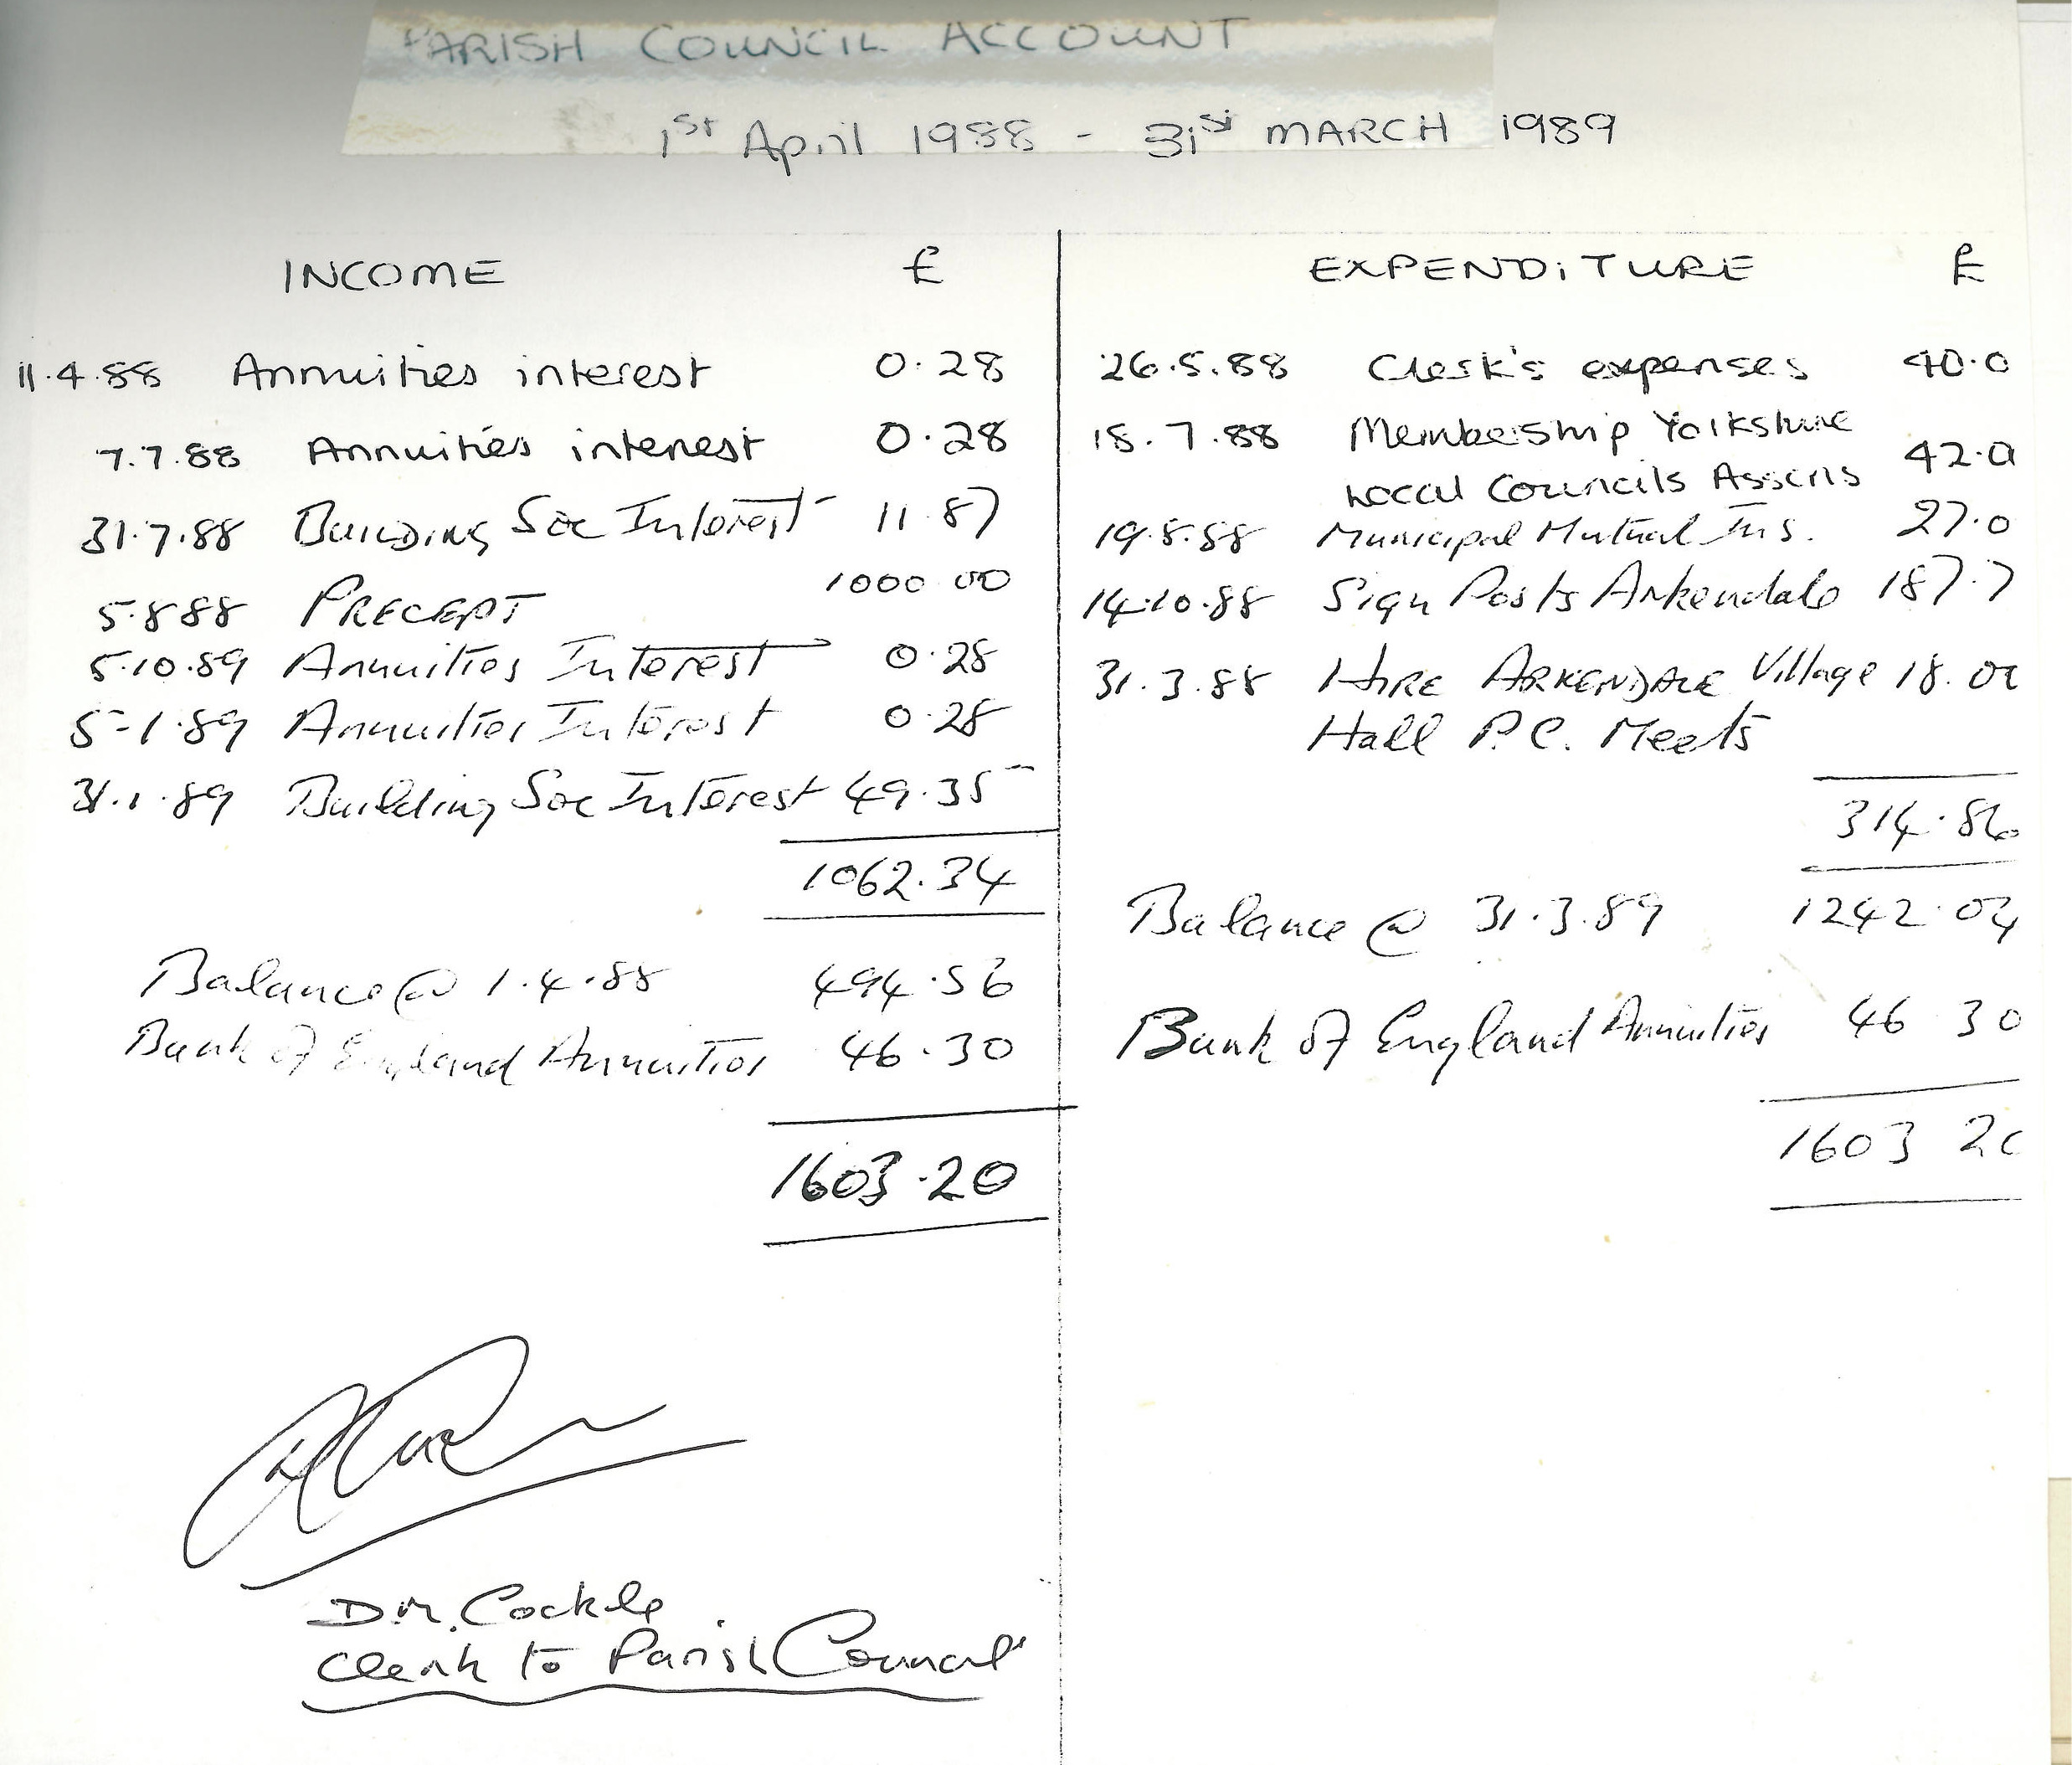 PARISH COUNCIL ACCOUNT
1st April 1988 - 31st MARCH 1989
INCOME £
11.4.88 Annuities interest 0.28
7.7.88 Annuities interest 0.28
31.7.88 Building Soc Interest 11.87
5.8.88 PRECEPT 1000.00
5.10.89 Annuities Interest 0.28
5-1.89 Annuities Interest 0.28
31.1.89 Building Soc Interest 49.35
1062.34
Balance @ 1.4.88 494.56
Bank of England Annuities 46.30
1603.20
D.M. Cockle
Clerk to Parish Council
EXPENDITURE £
26.5.88 Clerk's expenses 40.0
18.7.88 Membership Yorkshire
Local Councils Assens 42.0
19.8.88 Municipal Mutual Ins. 27.0
14.10.88 Sign Posts Arkendale 187.7
31.3.88 HIRE ARKENDALE Village 18.00
Hall P.C. Meets
314.86
Balance @ 31.3.89 1242.04
Bank of England Annuities 46 30
1603 20